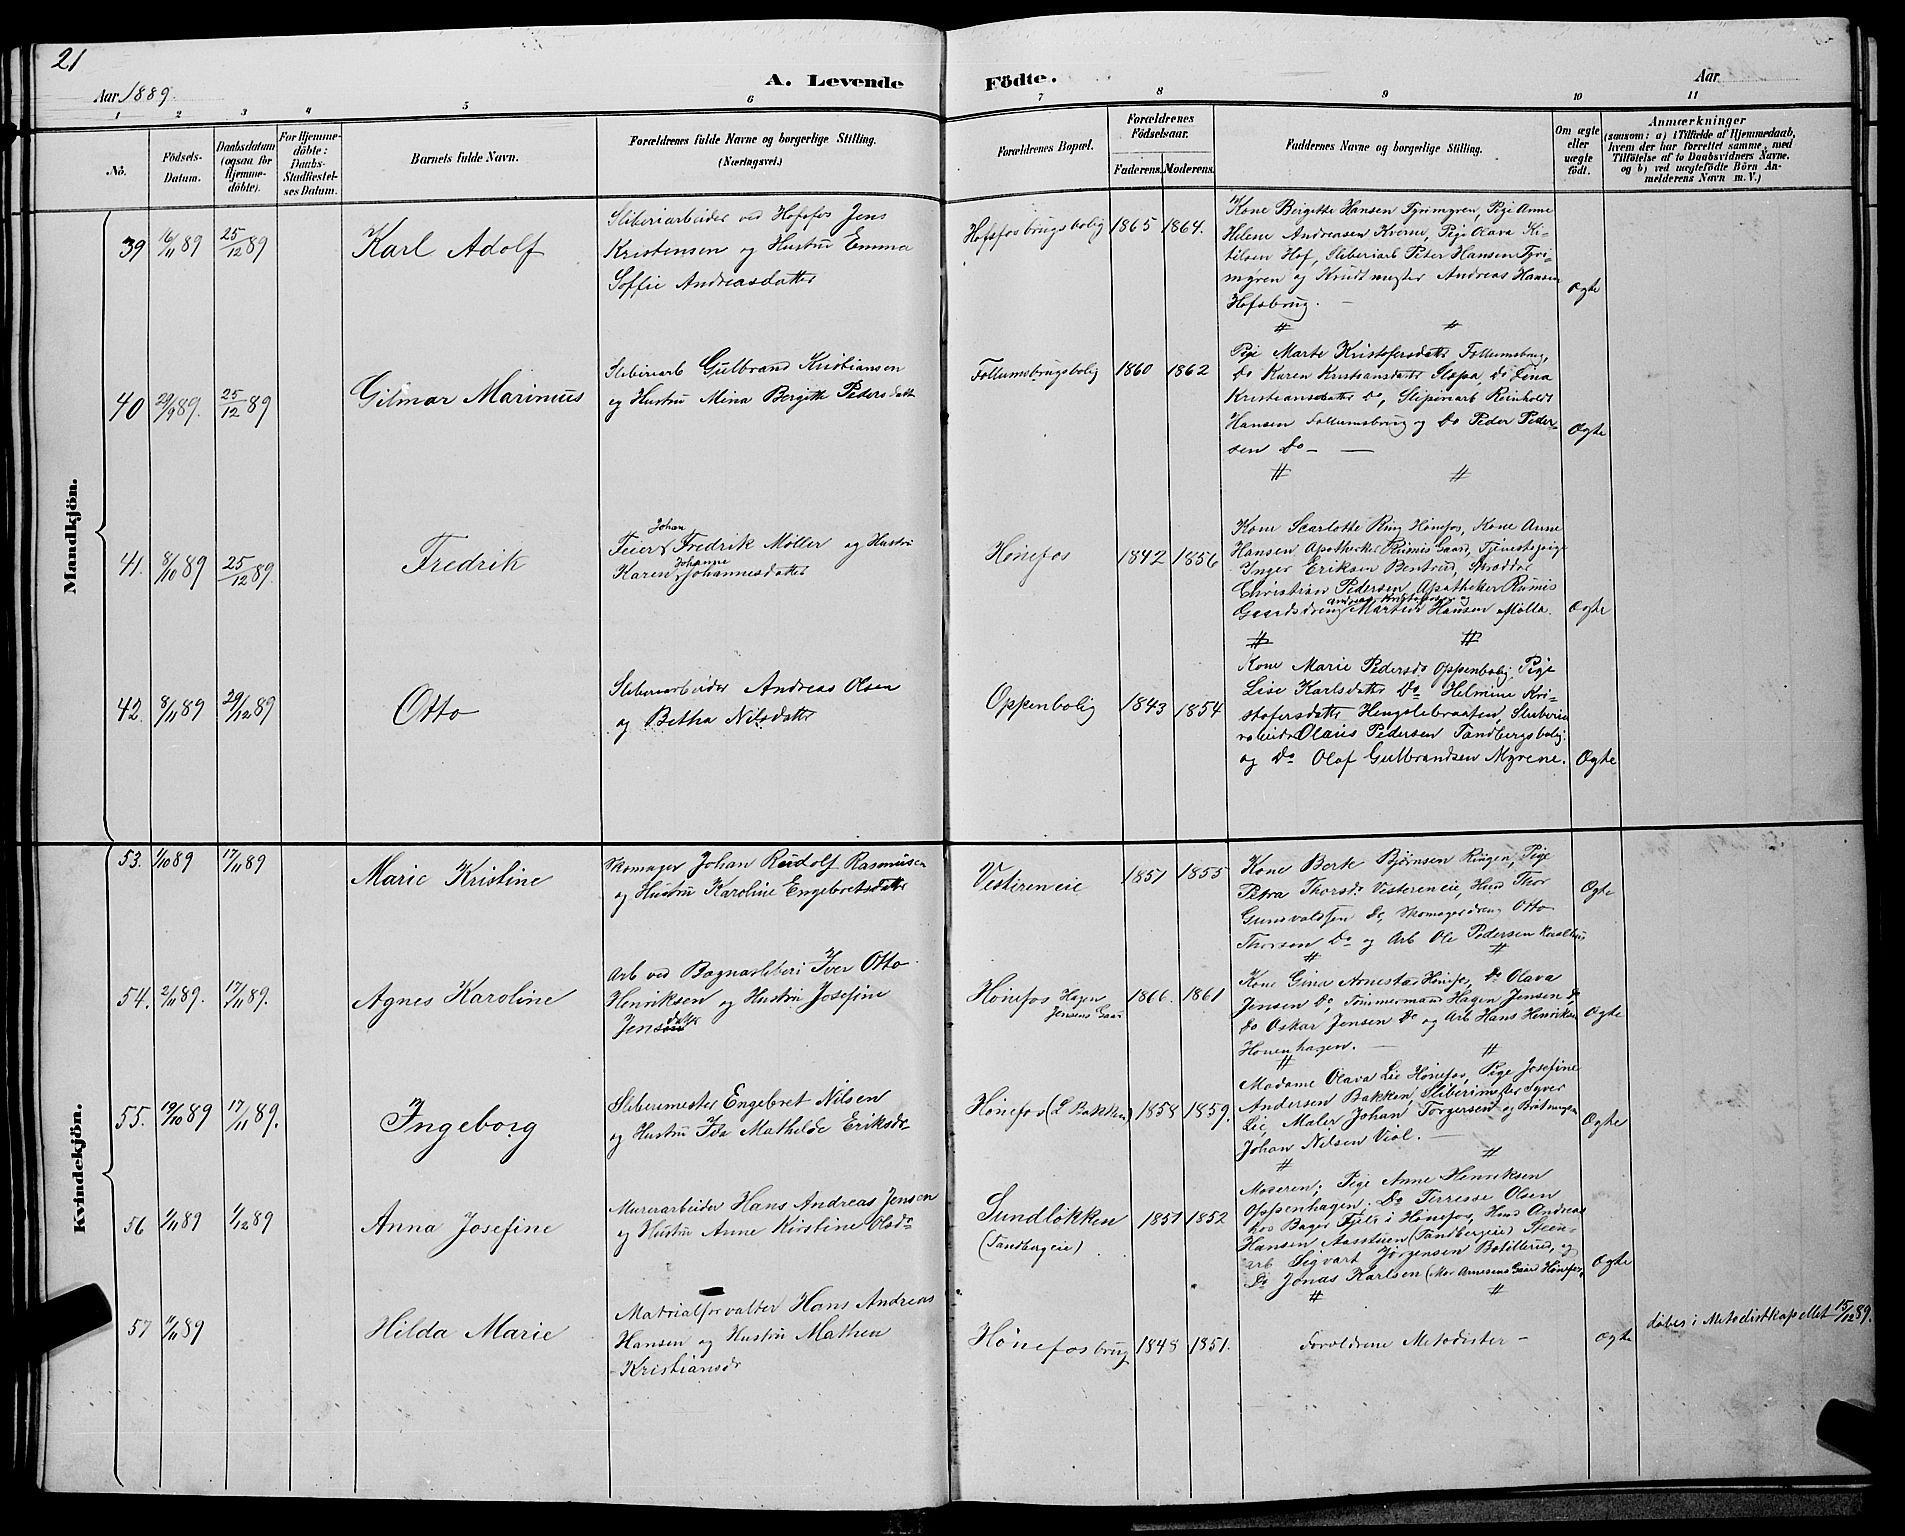 21
A. Levende Födte.
Aar 1889.
Aar
1 2 3 4 5 6 7 8 9 10 11
No.
Födsels-Datum.
Daabsdatum (ogsaa for Hjemmedöbte).
For Hjemmedöbte: Daabs-Stadfæstelses Datum.
Barnets fulde Navn.
Forældrenes fulde Navne og borgerlige Stilling. (Næringsvei.)
Forældrenes Bopæl.
Forældrenes Födselsaar.
Faderens. Moderens.
Faddernes Navne og borgerlige Stilling.
Om ægte eller uægte födt.
Anmærkninger
(saasom: a) i Tilfælde af Hjemmedaab, hvem der har forrettet samme, med Tilföielse af to Daabsvidners Navne. og b) ved uægtefödte Börn Anmelderens Navn m. V.)
Mandkjön.
39 16/11 89 25/12 89 Karl Adolf
Sliberiarbeider ved Hofsfos Jens
Kristensen og Hustru Emma
Soffie Andreasdatter
Hofsfosbrugsbolig 1865 1864.
Kone Birgitte Hansen Tyrimyren, Pige Anne
Helene Andreasen Kverne, Pige Olava Ke-
tilsen Hof, Sliberiarb Peter Hansen Tyri-
myren og Krudtmester Andreas Hansen
Hofsbrug. —
Ægte
40 29/9 89. 25/12 89 Gilmar Marinius
Sliberiarb Gulbrand Kristiansen
og Hustru Mina Bergitte Pedersdatt
Follumsbrugsbolig 1860 1862
Pige Marte Kristofersdatter Follumsbrug,
Do Karen Kristiansdatter Do Lina
Kristiansdatter Do, Sliperiarb Reinholdt
Hansen Follumsbrug og Do Peder Peder-
sen Do —
Ægte
41. 8/10 89 25/12 89. Fredrik
Feier Johan Fredrik Möller og Hustru
Karen Johanne Johannesdatter
Hönefos 1842 1856
Kone Scarlotte Ring Hönefos, Kone Anne
Hansen Apotheker Gaard, Tjenestepige
Inger Eriksen Bentrud, Skrædder
Christian Pedersen, Apotheker
Gaardsdreng Andreas Kristofersen og Martin Hansen Mölla.
Ægte
42. 8/11 89 29/12 89 Otto
Sliberiarbeider Andreas Olsen
og Betha Nilsdatter
Oppenbolig 1843 1854
Kone Marie Pedersdr Oppenbolig, Pige
Lise Karlsdatter Do Helmine Kri-
stofersdatter Hengslebraaten, Sliberia
rbeider Olaus Pedersen Tandbergsbolig
og Do Olaf Gulbrandsen Myrene.
Ægte
Kvindekjön.
53. 1/10 89 17/11 89 Marie Kristine
Skomager Johan Rudolf Rasmusen
og Hustru Karoline Engebretsdatter
Vestereneie 1851 1855
Kone Berte Björnsen Ringen, Pige
Petra Thorsdr Vestereneie, Husmd Thor
Gunvaldsen Do, Skomagerdreng Otto
Thorsen Do og Arb Ole Pedersen
Ægte
54. 2/11 89. 17/11 89. Agnes Karoline
Arb ved Bagnasliberi Iver Otto
Henriksen og Hustru Josefine
Jensdatter
Hönefos Hagen Jensens Gaar 1866. 1861
Kone Gina Arnesta Hönefos, Do Olava
Jensen Do, Tømmermand Hagen Jensen Do,
Do Oskar Jensen Do og Arb Hans Henriksen
Honenhagen. —
Ægte
55. 19/10 89 17/11 89. Ingeborg
Sliberimester Engebret Nilsen
og Hustru Ida Mathilde Eriksdr
Hönefos (L Bakken) 1858 1859.
Madame Olava Lie Hönefos, Pige Josefine
Andersen Bakken, Sliberimester Syver
Lie, Maler Johan Torgersen og
Johan Nilsen Viol. —
Ægte
56 1/11 89 1/12 89 Anna Josefine
Murerarbeider Hans Andreas Jensen
og Hustru Anne Kirstine Olsdr
Sundløkken (Tandbergeie) 1851 1852
Moseren; Pige Anne Henriksen
Oppenhagen, Do Terresse Olsen
hos Bager Fjeld i Hönefos, Husmd Andreas
Hansen Aasstuen (Tandbergeie) Steen-
arb Sigvart Jörgensen Botillerud, og
Do Jonas Karlsen (Mor Arnesens Gaard Hönefos)
Ægte
57 17/11 89 Hilda Marie
Matrialforvalter Hans Andreas
Hansen og Hustru Mathea
Kristiansdr
Hønefosbrug 1848 1851.
Forældrene Metodister —
Ægte
döbes i Metodistkapellet 15/12 89.